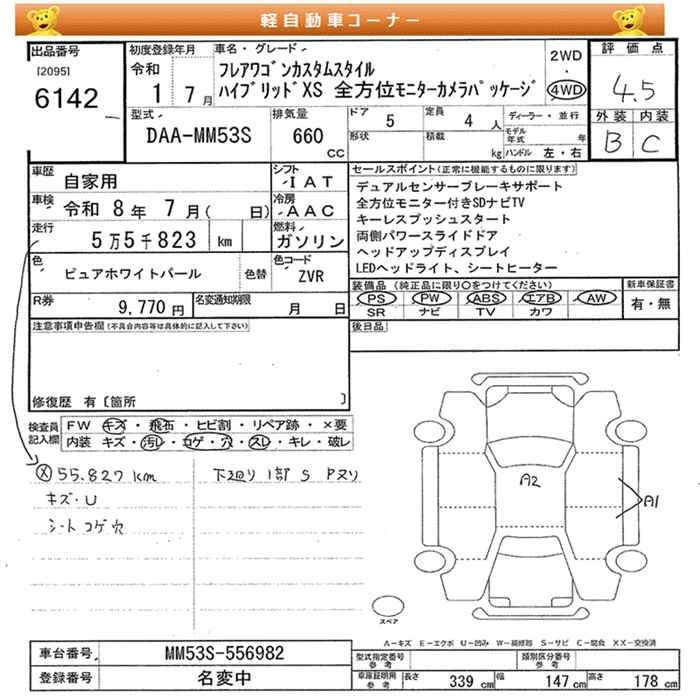 軽自動車コーナー
出品番号
[2095]
6142
初度登録年月
令和
1 7月
車名・グレード
フレアワゴンカスタムスタイル
ハイブリッドXS 全方位モニターカメラパッケージ
2WD
・
4WD
評価点
4.5
外装 内装
B C
型式
DAA-MM53S
排気量
660
CC
ドア
5
定員
4 人
形状
積載
kg
ディーラー・並行
モデル年式 年
ハンドル 左・右
車歴
自家用
シフト
IAT
車検
令和 8年 7月( 日)
冷房
AAC
走行
5万5千823 km
燃料
ガソリン
色
ピュアホワイトパール
色替
色コード
ZVR
R券
9,770 円
名変通知期限
月 日
セールスポイント(正常に機能するものに限ります)
デュアルセンサーブレーキサポート
全方位モニター付きSDナビTV
キーレスプッシュスタート
両側パワースライドドア
ヘッドアップディスプレイ
LEDヘッドライト、シートヒーター
装備品(純正品に限り○をつけてください)
PS PW ABS エアB AW
SR ナビ TV カワ
新車保証書
有・無
後日品
注意事項申告欄(不具合内容等は具体的に記入して下さい)
修復歴 有〔箇所 〕
検査員
記入欄
FW キズ・飛石・ヒビ割・リペア跡・×要
内装 キズ・汚レ・コゲ・穴・スレ・キレ・破レ
55.827km
キズ・U
シートコゲ穴
下廻り 1部 S Pヌリ
A2
A1
スペア
A-キズ E-エクボ U-凹み W-補修跡 S-サビ C-腐食 XX-交換済
車台番号
MM53S-556982
登録番号
名変中
型式指定番号
参考
類別区分番号
参考
車庫証明用
参考
長さ
339 cm
幅
147 cm
高さ
178 cm